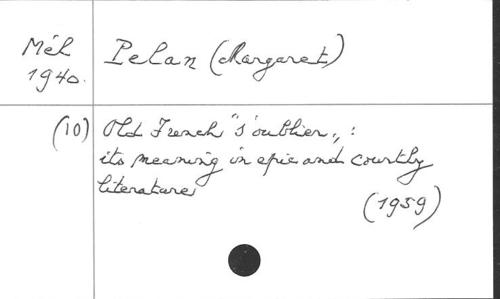 Mél Pelan (Margaret)
1940.
(10) Old French "s'oublier„ :
its meaning in epic and courtly
literature
(1959)